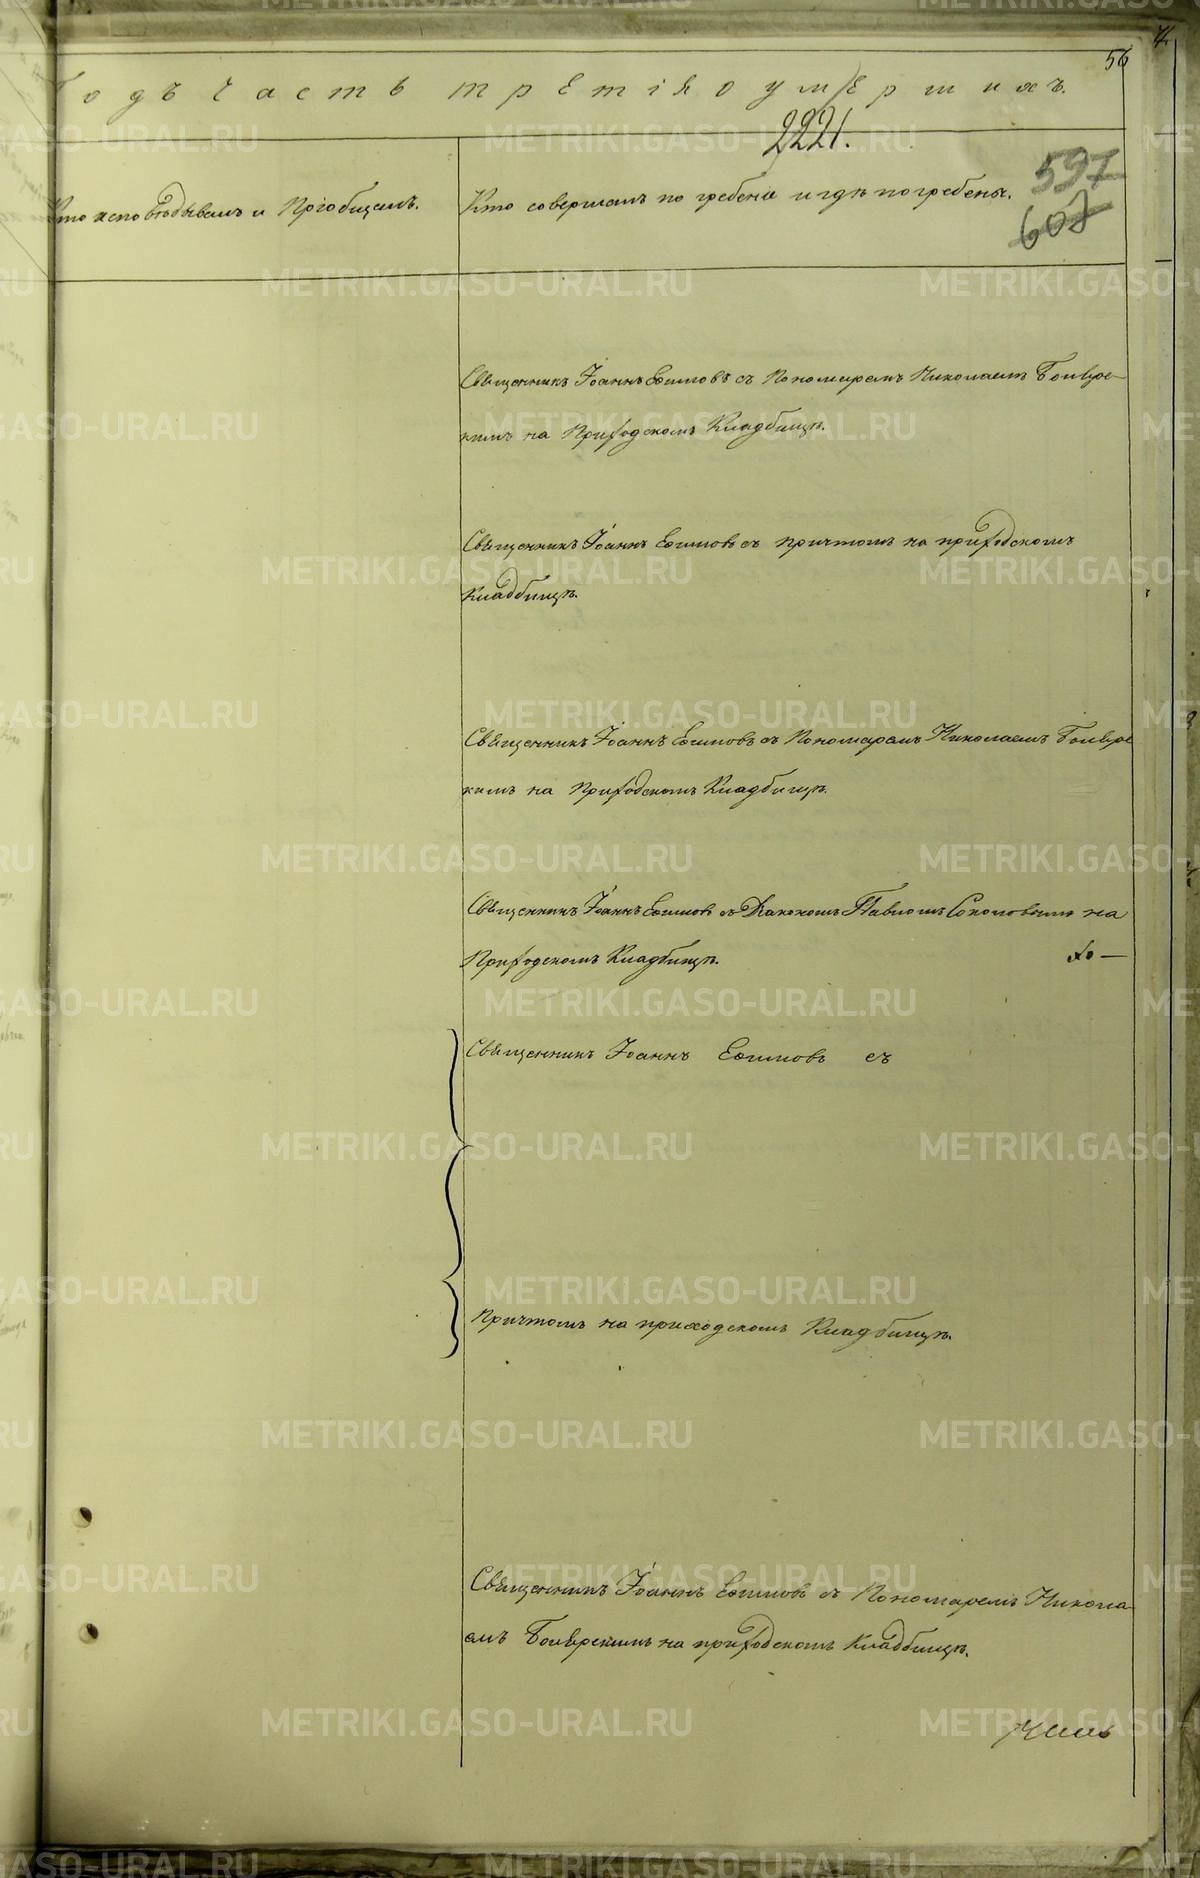 56
Годъ Часть третія о умершихъ.
2221.
597
607
Кто исповѣдывалъ и Пріобщалъ.
Кто совершалъ по гребеніе и гдѣ погребены.
Священникъ Іоаннъ Ефимовъ съ Пономаремъ Николаемъ
кимъ на Приходскомъ Кладбищѣ.
Священникъ Іоаннъ Ефимовъ съ причтомъ на приходскомъ
Кладбищѣ.
Священникъ Іоаннъ Ефимовъ съ Пономаремъ Николаемъ
кимъ на Приходскомъ Кладбищѣ.
Священникъ Іоаннъ Ефимовъ съ Діакономъ Павломъ Соколовымъ на
Приходскомъ Кладбищѣ.
Священникъ Іоаннъ Ефимовъ съ
Причтомъ на приходскомъ Кладбищѣ.
Священникъ Іоаннъ Ефимовъ съ Пономаремъ Никола-
емъ на приходскомъ Кладбищѣ.
METRIKI.GASO-URAL.RU